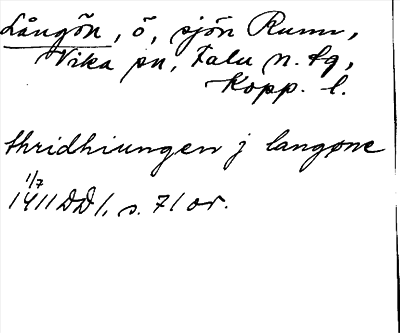 Långön, ö, sjön Runn,
Vika sn, Falu n. tg,
Kopp. l.
thridhiungen j langøne
1/7
1411 DD 1, s. 71 or.